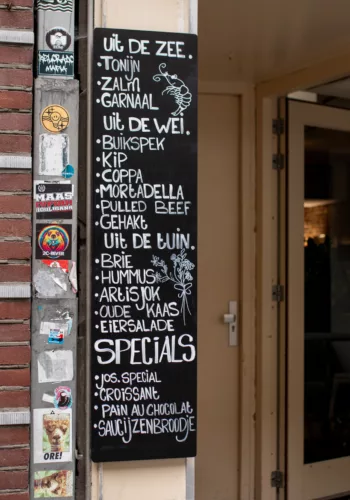 uit DE ZEE.
• TONIJN
• ZALM
• GARNAAL
uit DE WEI.
• BUIKSPEK
• KIP
• COPPA
• MORTADELLA
• PULLED BEEF
• GEHAKT
uit DE tuin.
• BRIE
• HUMMUS
• ARTISJOK
• OUDE KAAS
• EIERSALADE
SPECIALS
• JOS. SPECIAL
• CROISSANT
• PAIN AU CHOCOLAT
• SAUCIJZENBROODJE
BELGRADO
MAFIA
MAAS
ORE!